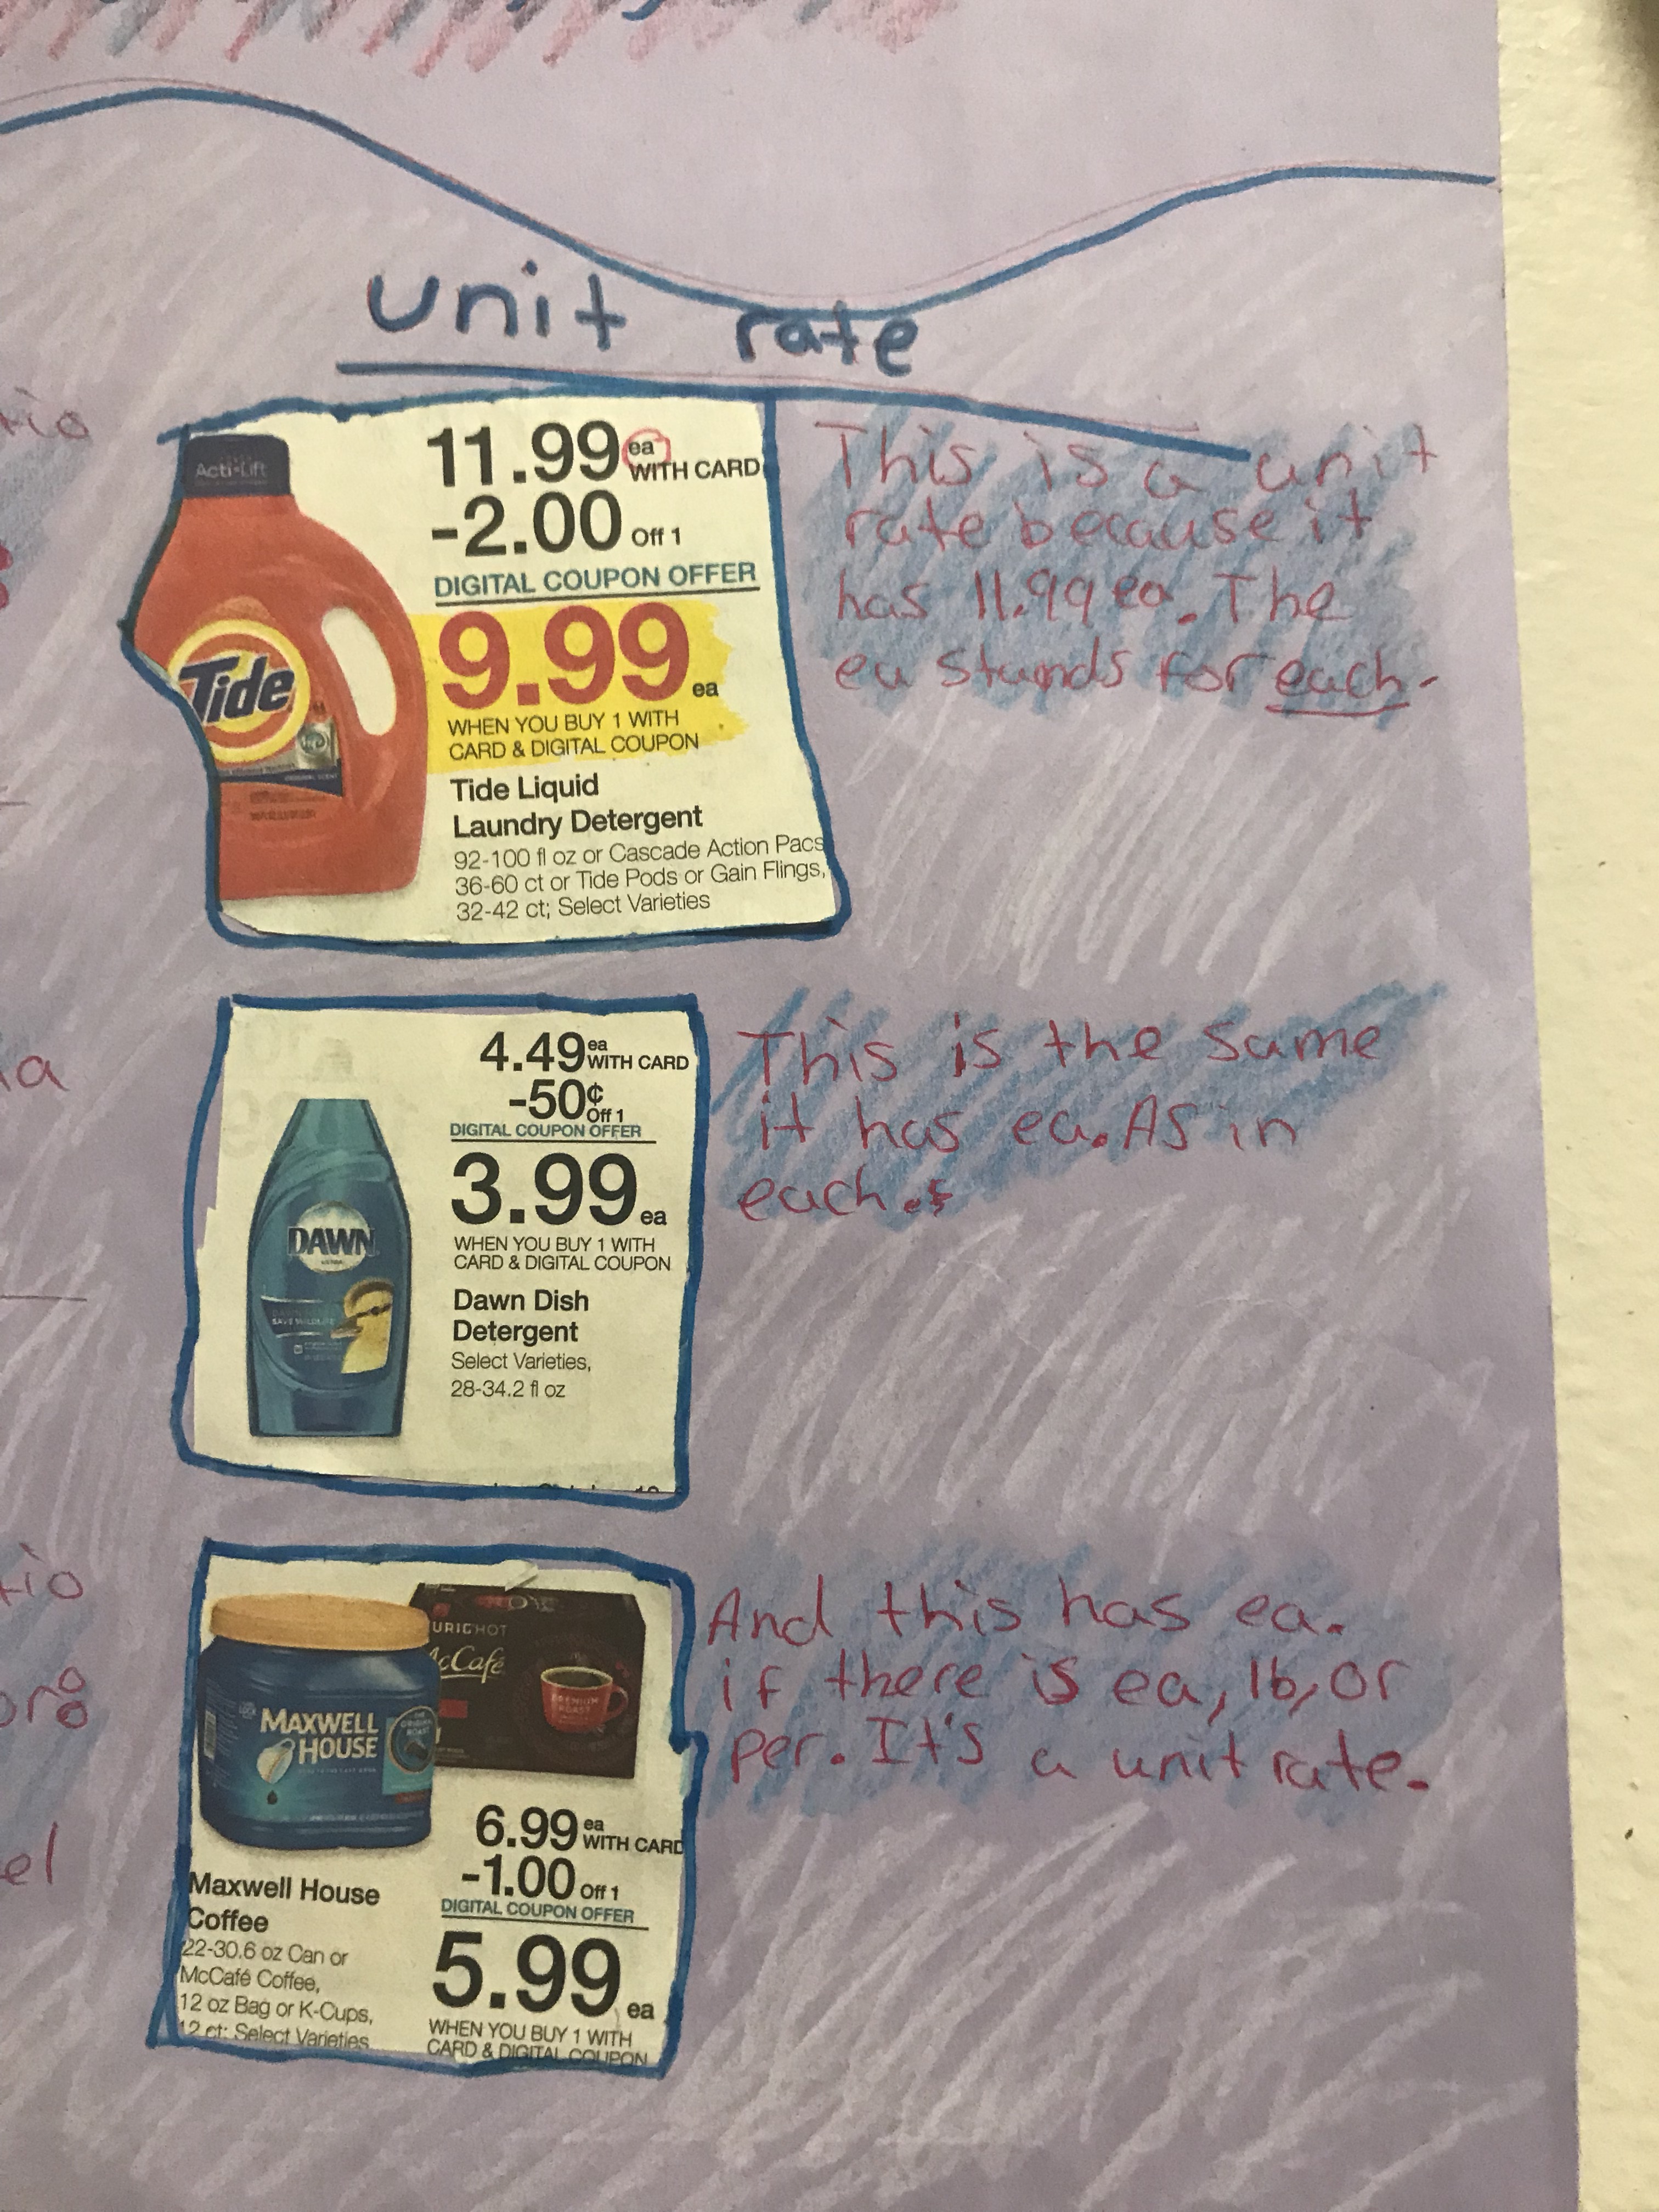 unit rate
Acti-Lift
Tide
11.99 ea
WITH CARD
-2.00 Off 1
DIGITAL COUPON OFFER
9.99 ea
WHEN YOU BUY 1 WITH
CARD & DIGITAL COUPON
Tide Liquid
Laundry Detergent
92-100 fl oz or Cascade Action Pacs
36-60 ct or Tide Pods or Gain Flings,
32-42 ct; Select Varieties
This is a unit
rate because it
has 11.99 ea. The
ea stands for each.
DAWN
ULTRA
SAVE WILDLIFE
4.49 ea
WITH CARD
-50¢ Off 1
DIGITAL COUPON OFFER
3.99 ea
WHEN YOU BUY 1 WITH
CARD & DIGITAL COUPON
Dawn Dish
Detergent
Select Varieties,
28-34.2 fl oz
This is the same
it has ea. As in
each.
URIG HOT
McCafé
PREMIUM
ROAST
MAXWELL
HOUSE
Maxwell House
Coffee
22-30.6 oz Can or
McCafé Coffee,
12 oz Bag or K-Cups,
12 ct; Select Varieties
6.99 ea
WITH CARD
-1.00 Off 1
DIGITAL COUPON OFFER
5.99 ea
WHEN YOU BUY 1 WITH
CARD & DIGITAL COUPON
And this has ea.
if there is ea, lb, or
per. It's a unit rate.
tio
a
tio
or
el